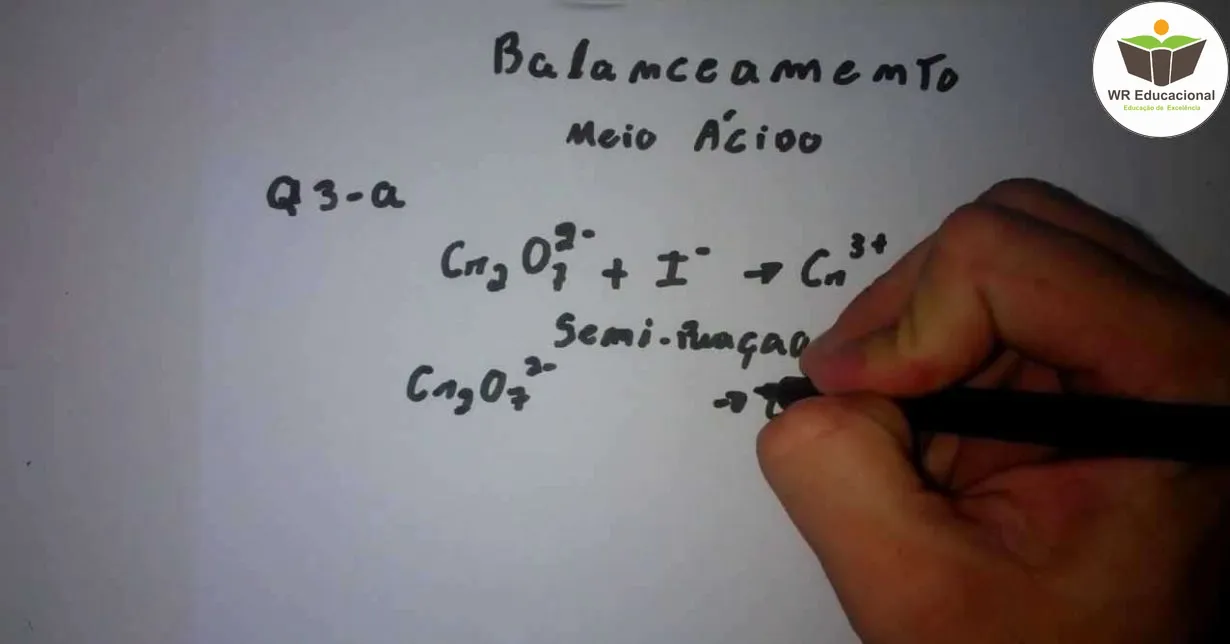 WR Educacional
Educação de Excelência
Balanceamento
Meio Ácido
Q3-a
Cr₂O₇²⁻ + I⁻ → Cr³⁺
Semi-reação
Cr₂O₇²⁻ →